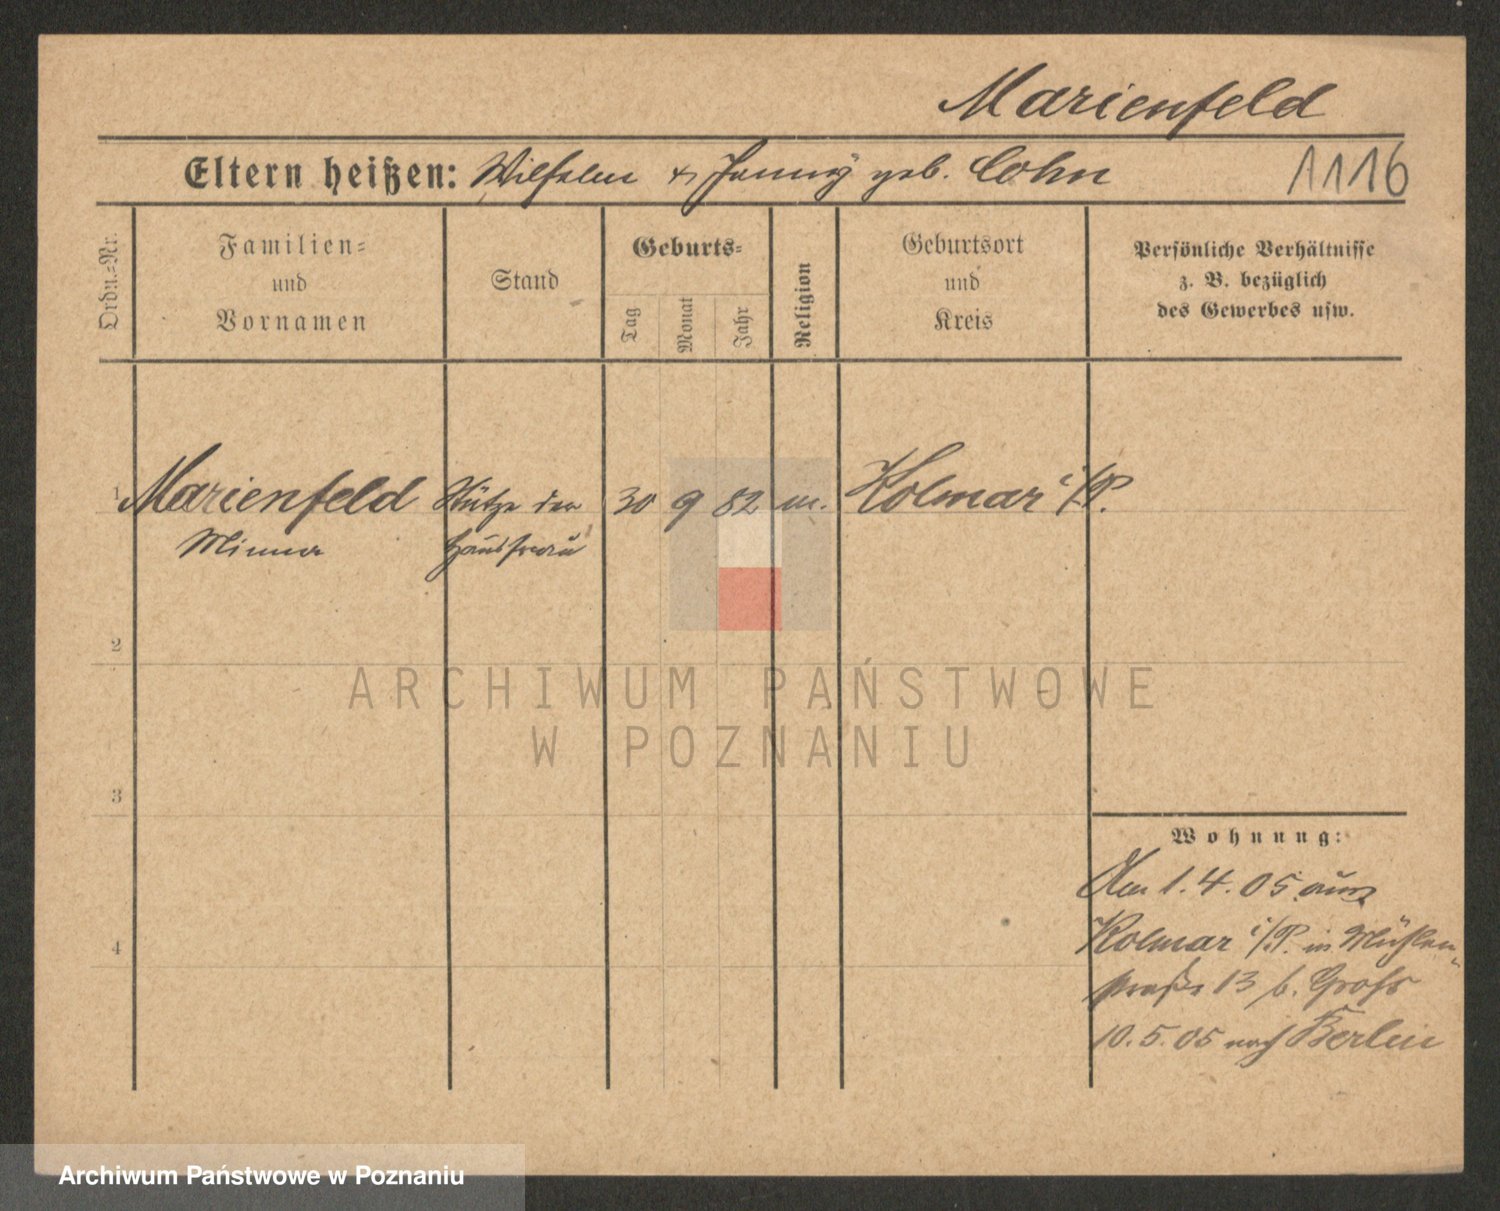 Marienfeld
Eltern heißen: Wilhelm & Jenny geb. Cohn
1116
Ordn.-Nr.
Familien-
und
Vornamen
Stand
Geburts-
Tag
Monat
Jahr
Religion
Geburtsort
und
Kreis
Persönliche Verhältnisse
z. B. bezüglich
des Gewerbes usw.
1 Marienfeld Stütze der 30 9 82 m. Kolmar i/P.
Minna Hausfrau
2
3
4
Wohnung:
Am 1.4.05 aus
Kolmar i/P. in Mühlen-
straße 13 b. Groß
10.5.05 nach Berlin
ARCHIWUM PAŃSTWOWE
W POZNANIU
Archiwum Państwowe w Poznaniu